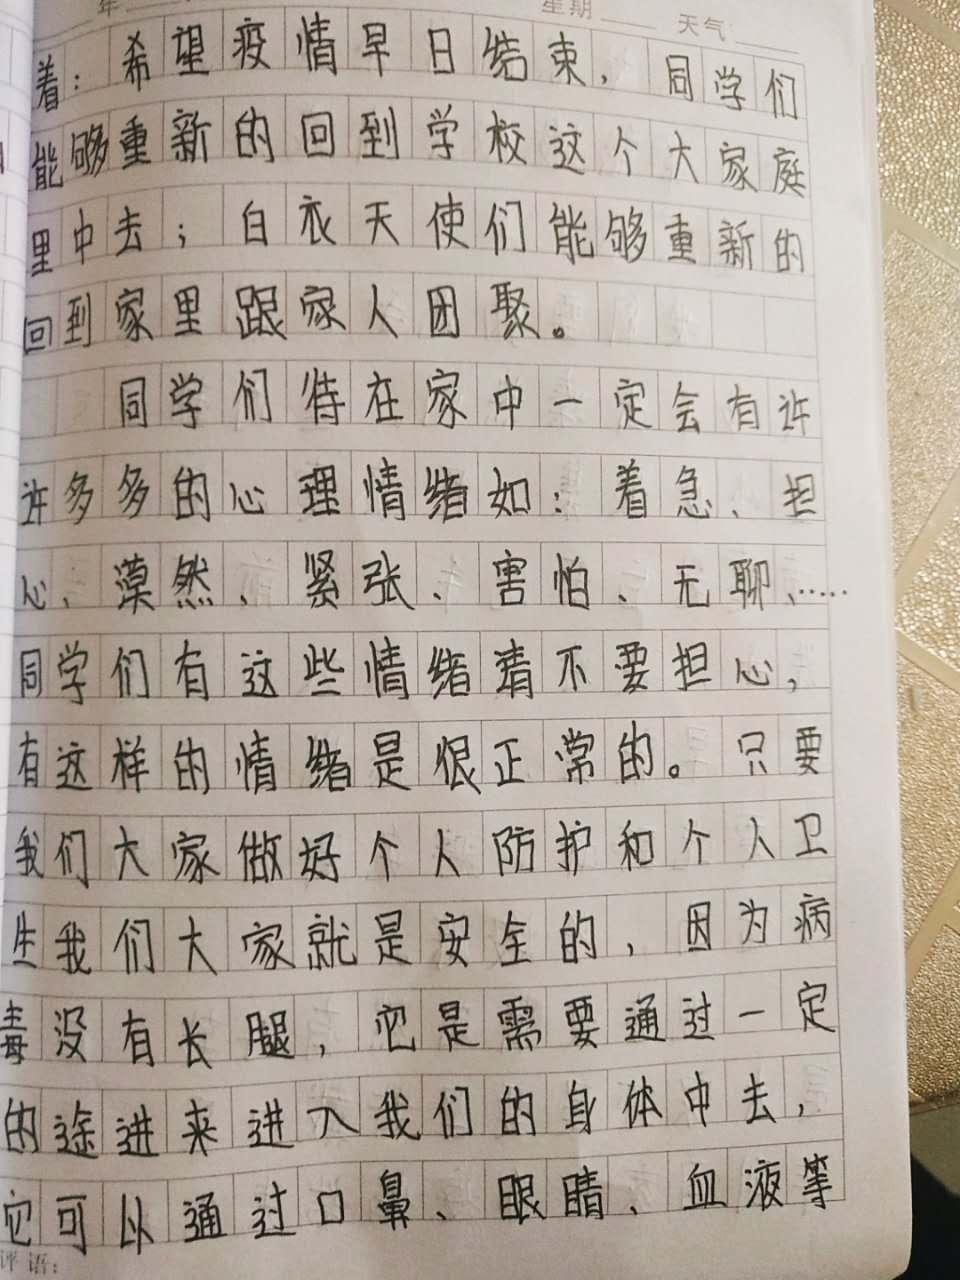 年 星期 天气
着：希望疫情早日结束，同学们
能够重新的回到学校这个大家庭
里中去；白衣天使们能够重新的
回到家里跟家人团聚。
同学们待在家中一定会有许
许多多的心理情绪如：着急、担
心、漠然、紧张、害怕、无聊、……
同学们有这些情绪请不要担心，
有这样的情绪是很正常的。只要
我们大家做好个人防护和个人卫
生我们大家就是安全的，因为病
毒没有长腿，它是需要通过一定
的途进来进入我们的身体中去，
它可以通过口鼻、眼睛、血液等
评语：